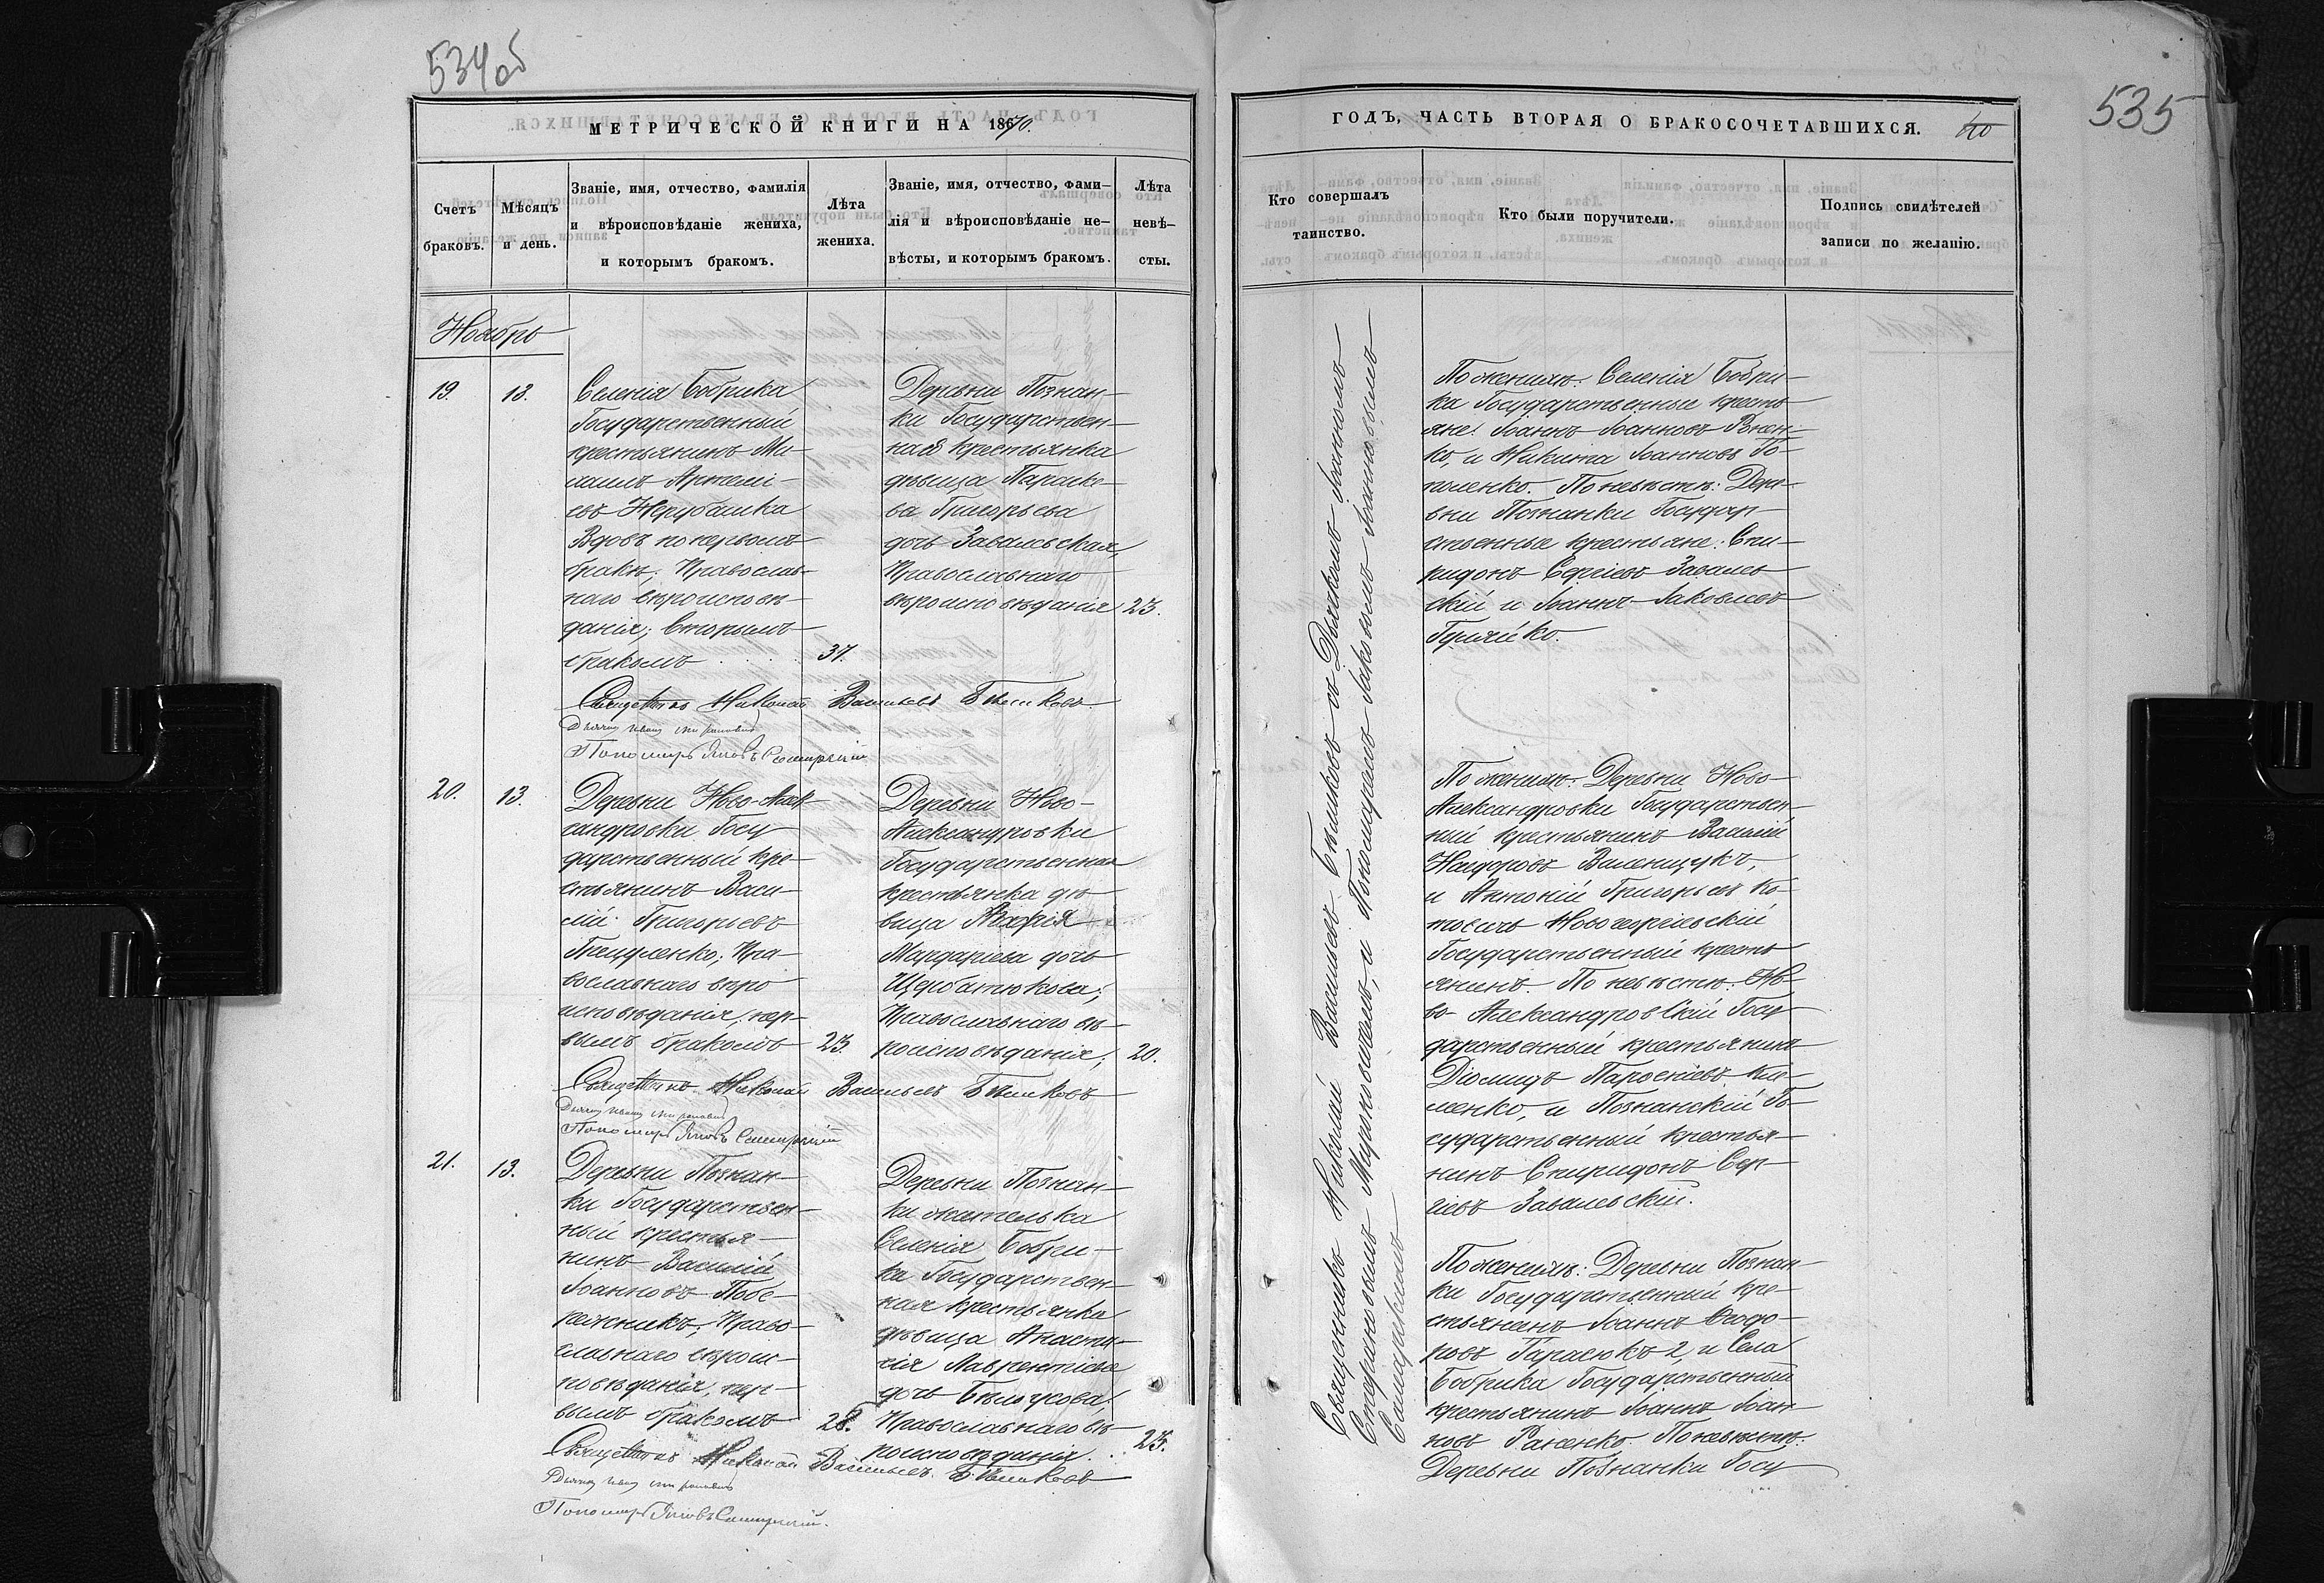 534об
МЕТРИЧЕСКОЙ КНИГИ НА 1870.
Счетъ браковъ.
Мѣсяцъ и день.
Званіе, имя, отчество, фамилія
и вѣроисповѣданіе жениха,
и которымъ бракомъ.
Лѣта
жениха.
Званіе, имя, отчество, фами-
лія и вѣроисповѣданіе не-
вѣсты, и которымъ бракомъ.
Лѣта
невѣ-
сты.
Ноябрь
19.
13.
Селенія Бобрика
Государственный
крестьянинъ Ми-
хаилъ Артемі-
евъ Нерубашка
Вдовъ по первомъ
бракѣ; Православ-
наго вѣроисповѣ-
данія; Вторымъ
бракомъ
37.
Деревни Познан-
ки Государствен-
ная крестьянка
дѣвица Параске-
ва Григорьева
дочь Завальская,
Православнаго
вѣроисповѣданія
23.
Священникъ Николай Васильевъ Бѣликовъ
Дьячокъ Иванъ
Пономарь Яковъ
20.
13.
Деревни Ново-Алек-
сандровки Госу-
дарственный кре-
стьянинъ Васи-
лій Григорьевъ
Пра-
вославнаго вѣро
исповѣданія, пер-
вымъ бракомъ
23.
Деревни Ново-
Александровки
Государственная
крестьянка дѣ-
вица Марія
Мардаріева дочь
Щербатюкова;
Православнаго вѣ-
роисповѣданія;
20.
Священникъ Николай Васильевъ Бѣликовъ
Дьячокъ Иванъ
Пономарь Яковъ
21.
13.
Деревни Познан-
ки Государствен-
ный крестья-
нинъ Василій
Іоанновъ Побе-
режникъ; Право-
славнаго вѣроис-
повѣданія, пер-
вымъ бракомъ
28.
Деревни Познан-
ки жителька
Селенія Бобри-
ка Государствен-
ная крестьянка
дѣвица Анаста-
сія Лаврентіева
дочь Бѣлоусова;
Православнаго вѣ-
роисповѣданія.
25.
Священникъ Николай Васильевъ Бѣликовъ
Дьячокъ Иванъ
Пономарь Яковъ
ГОДЪ, ЧАСТЬ ВТОРАЯ О БРАКОСОЧЕТАВШИХСЯ.
535
Кто совершалъ
таинство.
Кто были поручители.
Подпись свидѣтелей
записи по желанію.
Священникъ Николай Васильевъ Бѣликовъ съ Дьячкомъ Іоанномъ
и Пономаремъ Іаковомъ Іоанновымъ
По женихѣ: Селенія Бобри-
ка Государственные кресть
яне: Іоаннъ Іоанновъ
и Никита Іоанновъ
По невѣстѣ: Дере-
вни Познанки Государ-
ственные крестьяне: Спи-
ридонъ Сергіевъ Заваль-
скій и Іоаннъ Іаковлевъ
По женихѣ: Деревни Ново-
Александровки Государствен-
ный крестьянинъ Василій
и Антоній Григорьевъ Ко-
Новогеоргіевскій
Государственный кресть
янинъ. По невѣстѣ: Но-
во-Александровскій Госу-
дарственный крестьянинъ
Діомидъ Парѳеніевъ Кли-
менко, и Познанскій Го-
сударственный крестья-
нинъ Спиридонъ Сер-
гіевъ Завальскій.
По женихѣ: Деревни Познан-
ки Государственный кре-
стьянинъ Іоаннъ Ѳеодо-
ровъ Тарасюкъ 2, и Села
Бобрика Государственный
крестьянинъ Іоаннъ Іоан-
новъ По невѣстѣ:
Деревни Познанки Госу